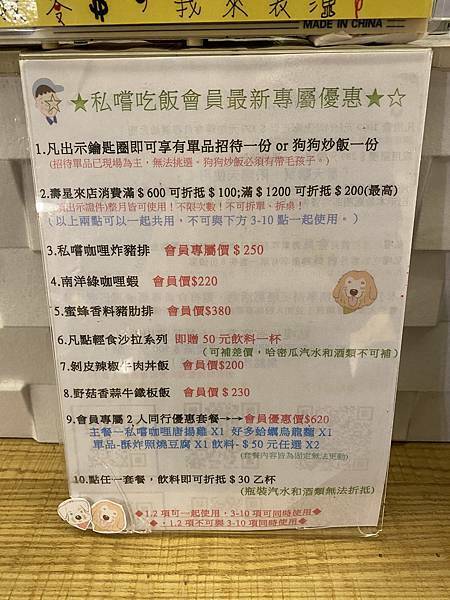 我來表演
MADE IN CHINA
☆★私嚐吃飯會員最新專屬優惠★☆
1.凡出示鑰匙圈即可享有單品招待一份 or 狗狗炒飯一份
(招待單品已現場為主，無法挑選。狗狗炒飯必須有帶毛孩子。)
2.壽星來店消費滿$600 可折抵$100;滿$1200 可折抵$200(最高)
須出示證件)整月皆可使用！不限次數！不可拆單、拆桌！
(以上兩點可以一起共用，不可與下方 3-10 點一起使用。)
3.私嚐咖哩炸豬排 會員專屬價$250
4.南洋綠咖哩蝦 會員價$220
5.蜜蜂香料豬肋排 會員價$380
6.凡點輕食沙拉系列 即贈 50 元飲料一杯
(可補差價，哈密瓜汽水和酒類不可補)
7.剝皮辣椒牛肉丼飯 會員價$200
8.野菇香蒜牛鐵板飯 會員價$230
9.會員專屬 2 人同行優惠套餐→→會員優惠價$620
主餐─私嚐咖哩唐揚雞 X1 好多蛤蠣烏龍麵 X1
單品-酥炸照燒豆腐 X1 飲料-$50 元任選 X2
(套餐內容皆為固定無法更動)
10.點任一套餐，飲料即可折抵$30 乙杯
(瓶裝汽水和酒類無法折抵)
◆1.2 項可一起使用，3-10 項可同時使用◆
◆，1.2 項不可與 3-10 項同時使用◆